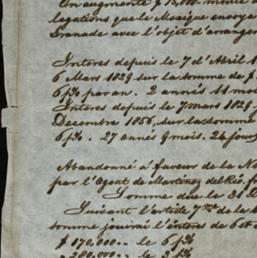 On augmente $ 15,000. moitié d
légations que le Mexique envoya
Grenade avec l'objet d'arranger
Interes depuis le 7 d'Avril 1
6 Mars 1829 sur la somme de $
6 p% par an. 2 annees 11 mois
Interes depuis le 7 mars 1829
Decembre 1856, sur la somme
6 p%. 27 année 9 mois. 24 jours
Abandonné à faveur de la No
par l'Agent de Martinez del Rio, f
Somme due le 31 D
Suivant l'article 7me de la
somme jourai l'interes de 6 et
$ 170,000.. le 6 p%
200,000.. le 3 p%